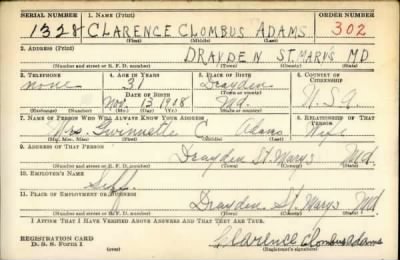 SERIAL NUMBER 1. NAME (Print) ORDER NUMBER
1328 CLARENCE CLOMBUS ADAMS 302
(First) (Middle) (Last)
2. ADDRESS (Print)
DRAYDEN ST. MARYS MD
(Number and street or R. F. D. number) (Town) (County) (State)
3. TELEPHONE 4. AGE IN YEARS 5. PLACE OF BIRTH 6. COUNTRY OF CITIZENSHIP
none 31 Drayden
DATE OF BIRTH (Town or county)
Nov. 13 1908 Md. U.S.A.
(Exchange) (Number) (Mo.) (Day) (Yr.) (State or country)
7. NAME OF PERSON WHO WILL ALWAYS KNOW YOUR ADDRESS 8. RELATIONSHIP OF THAT PERSON
Mrs. C. Adams Wife
(Mr., Mrs., Miss) (First) (Middle) (Last)
9. ADDRESS OF THAT PERSON
Drayden St. Marys Md.
(Number and street or R. F. D. number) (Town) (County) (State)
10. EMPLOYER'S NAME
Self
11. PLACE OF EMPLOYMENT OR BUSINESS
Drayden St. Marys Md
(Number and street or R. F. D. number) (Town) (County) (State)
I AFFIRM THAT I HAVE VERIFIED ABOVE ANSWERS AND THAT THEY ARE TRUE.
REGISTRATION CARD
D. S. S. Form 1 Clarence Clombus Adams
(over) (Registrant's signature)